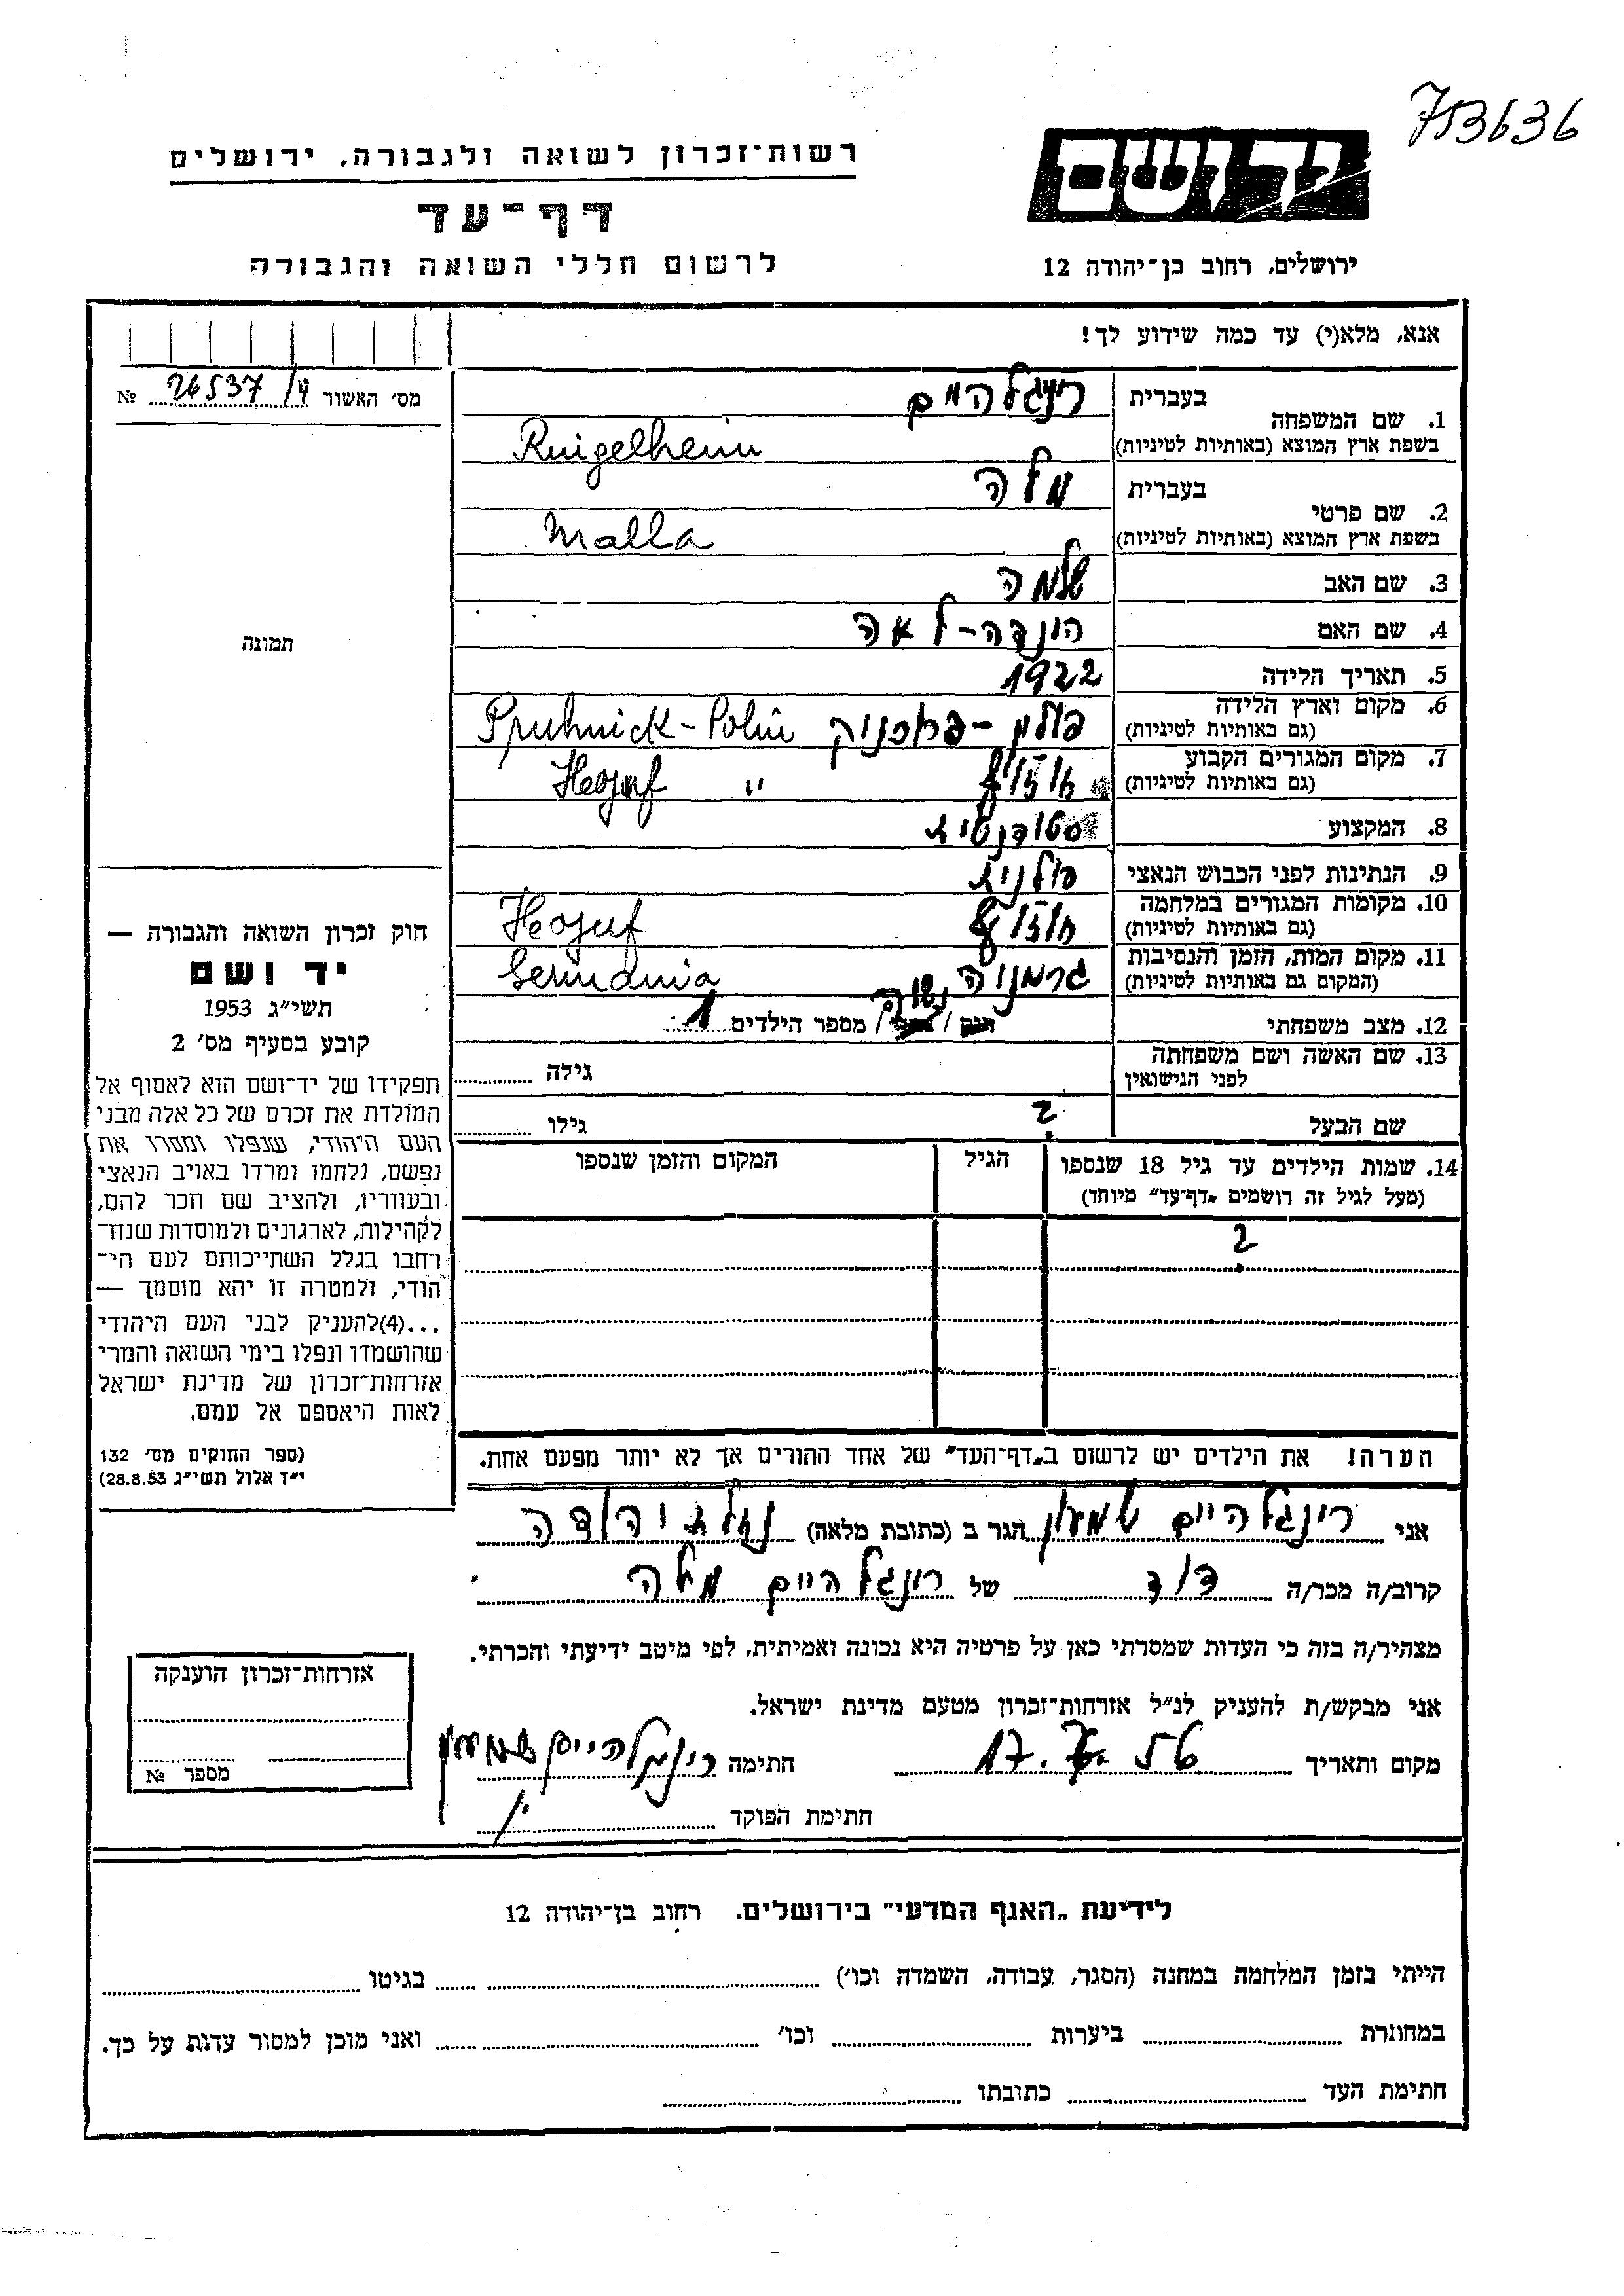 753636
רשות־זכרון לשואה ולגבורה, ירושלים
יד ושם
דף־עד
לרשום חללי השואה והגבורה
ירושלים, רחוב בן־יהודה 12
אנא, מלא(י) עד כמה שידוע לך!
מס׳ האשור № 26537/4
1. שם המשפחה בעברית רינגלהיים
בשפת ארץ המוצא (באותיות לטיניות) Ringelheim
2. שם פרטי בעברית מלה
בשפת ארץ המוצא (באותיות לטיניות) Malla
3. שם האב שלמה
4. שם האם הינדה-לאה
5. תאריך הלידה 1922
6. מקום וארץ הלידה (גם באותיות לטיניות) פולין - Pruhnick - Polin
7. מקום המגורים הקבוע (גם באותיות לטיניות) "
8. המקצוע סטודנטית
9. הנתינות לפני הכבוש הנאצי פולנית
10. מקומות המגורים במלחמה (גם באותיות לטיניות)
11. מקום המות, הזמן והנסיבות (המקום גם באותיות לטיניות) גרמניה Germania
12. מצב משפחתי נשוי / מספר הילדים 1
13. שם האשה ושם משפחתה לפני הנישואין גילה
שם הבעל ? גילו
14. שמות הילדים עד גיל 18 שנספו הגיל המקום והזמן שנספו
(מעל לגיל זה רושמים „דף־עד” מיוחד)
?
הערה! את הילדים יש לרשום ב„דף־העד” של אחד ההורים אך לא יותר מפעם אחת.
תמונה
חוק זכרון השואה והגבורה —
יד ושם
תשי״ג 1953
קובע בסעיף מס׳ 2
תפקידו של יד־ושם הוא לאסוף אל
המולדת את זכרם של כל אלה מבני
העם היהודי, שנפלו ומסרו את
נפשם, נלחמו ומרדו באויב הנאצי
ובעוזריו, ולהציב שם וזכר להם,
לקהילות, לארגונים ולמוסדות שנח־
רבו בגלל השתייכותם לעם הי־
הודי, ולמטרה זו יהא מוסמך —
...(4)להעניק לבני העם היהודי
שהושמדו ונפלו בימי השואה והמרי
אזרחות־זכרון של מדינת ישראל
לאות היאספם אל עמם.
(ספר החוקים מס׳ 132
י״ד אלול תשי״ג 28.8.53)
אני רינגלהיים שמעון הגר ב (כתובת מלאה) נחלת יהודה
קרוב/ה מכר/ה דוד של רינגלהיים מלה
מצהיר/ה בזה כי העדות שמסרתי כאן על פרטיה היא נכונה ואמיתית, לפי מיטב ידיעתי והכרתי.
אני מבקש/ת להעניק לנ״ל אזרחות־זכרון מטעם מדינת ישראל.
מקום ותאריך 17. 7. 56 חתימה רינגלהיים שמעון
חתימת הפוקד
אזרחות־זכרון הוענקה
מספר №
לידיעת „האגף המדעי” בירושלים. רחוב בן־יהודה 12
הייתי בזמן המלחמה במחנה (הסגר, עבודה, השמדה וכו׳) בגיטו
במחתרת ביערות וכו׳ ואני מוכן למסור עדות על כך.
חתימת העד כתובתו